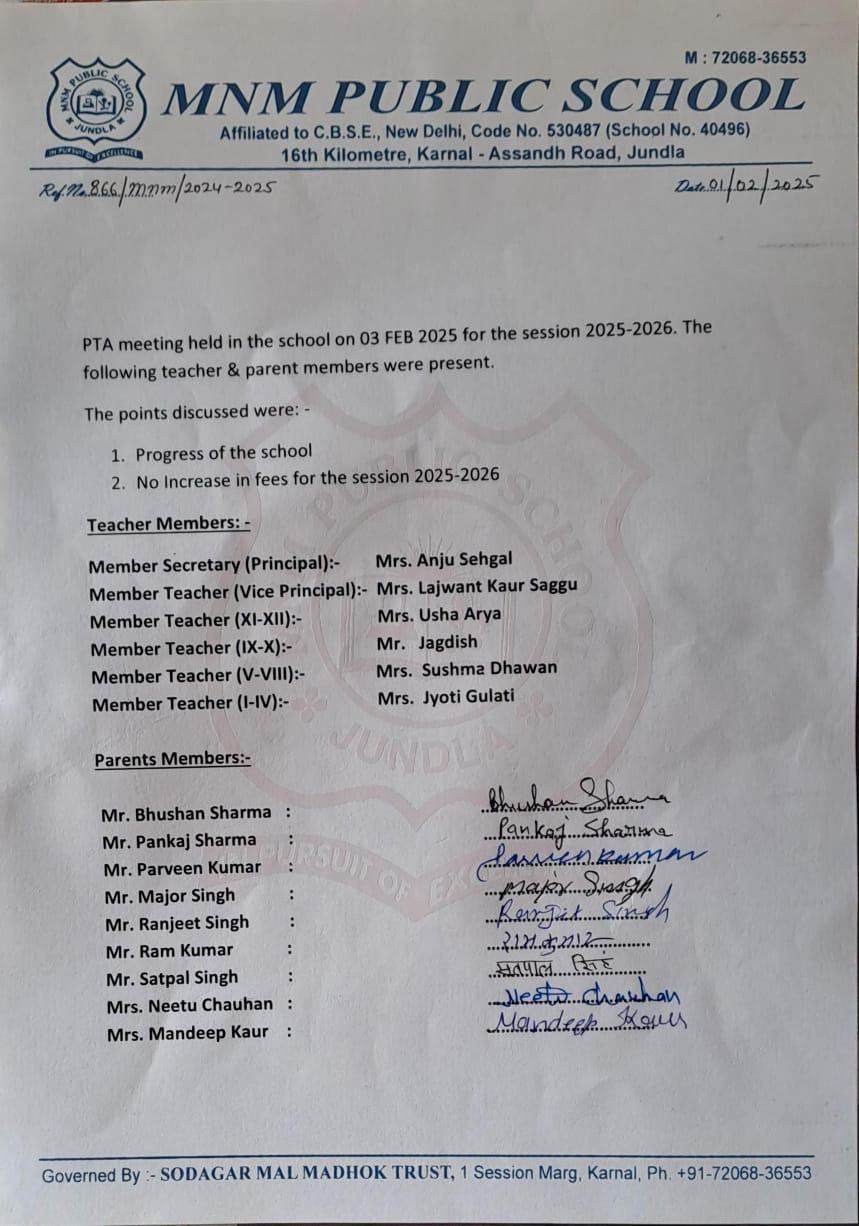 M : 72068-36553
MNM PUBLIC SCHOOL
MNM PUBLIC SCHOOL
JUNDLA
IN PURSUIT OF EXCELLENCE
Affiliated to C.B.S.E., New Delhi, Code No. 530487 (School No. 40496)
16th Kilometre, Karnal - Assandh Road, Jundla
Ref. No. 866/mnm/2024-2025 Date 01/02/2025
PTA meeting held in the school on 03 FEB 2025 for the session 2025-2026. The
following teacher & parent members were present.
The points discussed were: -
1. Progress of the school
2. No Increase in fees for the session 2025-2026
Teacher Members: -
Member Secretary (Principal):- Mrs. Anju Sehgal
Member Teacher (Vice Principal):- Mrs. Lajwant Kaur Saggu
Member Teacher (XI-XII):- Mrs. Usha Arya
Member Teacher (IX-X):- Mr. Jagdish
Member Teacher (V-VIII):- Mrs. Sushma Dhawan
Member Teacher (I-IV):- Mrs. Jyoti Gulati
Parents Members:-
Mr. Bhushan Sharma : Bhushan Sharma
Mr. Pankaj Sharma : Pankaj Sharma
Mr. Parveen Kumar : Parveen Kumar
Mr. Major Singh : Major Singh
Mr. Ranjeet Singh : Ranjit Singh
Mr. Ram Kumar : राम कुमार
Mr. Satpal Singh : सतपाल सिंह
Mrs. Neetu Chauhan : Neetu Chauhan
Mrs. Mandeep Kaur : Mandeep Kaur
MNM PUBLIC SCHOOL
JUNDLA
IN PURSUIT OF EXCELLENCE
Governed By :- SODAGAR MAL MADHOK TRUST, 1 Session Marg, Karnal, Ph. +91-72068-36553